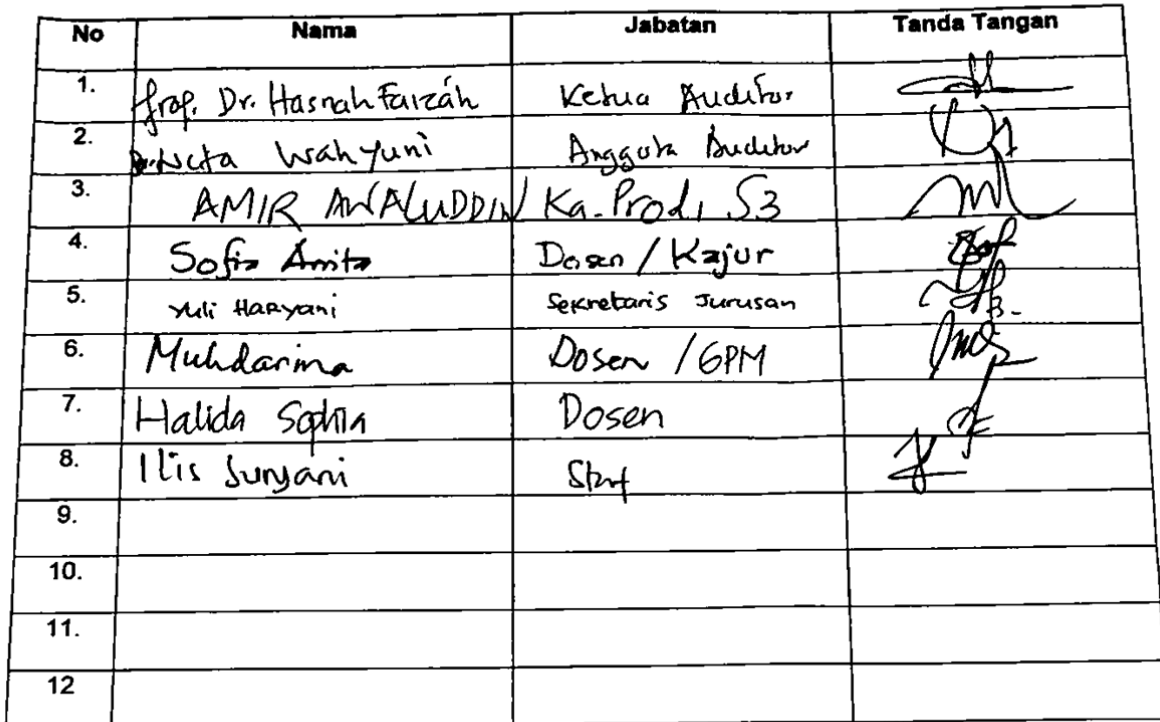 No Nama Jabatan Tanda Tangan
1. Prof. Dr. Hasnah Faizah Ketua Auditor
2. Dr. Neta Wahyuni Anggota Auditor
3. AMIR AWALUDDIN Ka. Prodi S3
4. Sofia Anita Dosen / Kajur
5. Yuli Haryani Sekretaris Jurusan
6. Muhdarina Dosen / GPM
7. Halida Sophia Dosen
8. Ilis Suryani Staf
9.
10.
11.
12